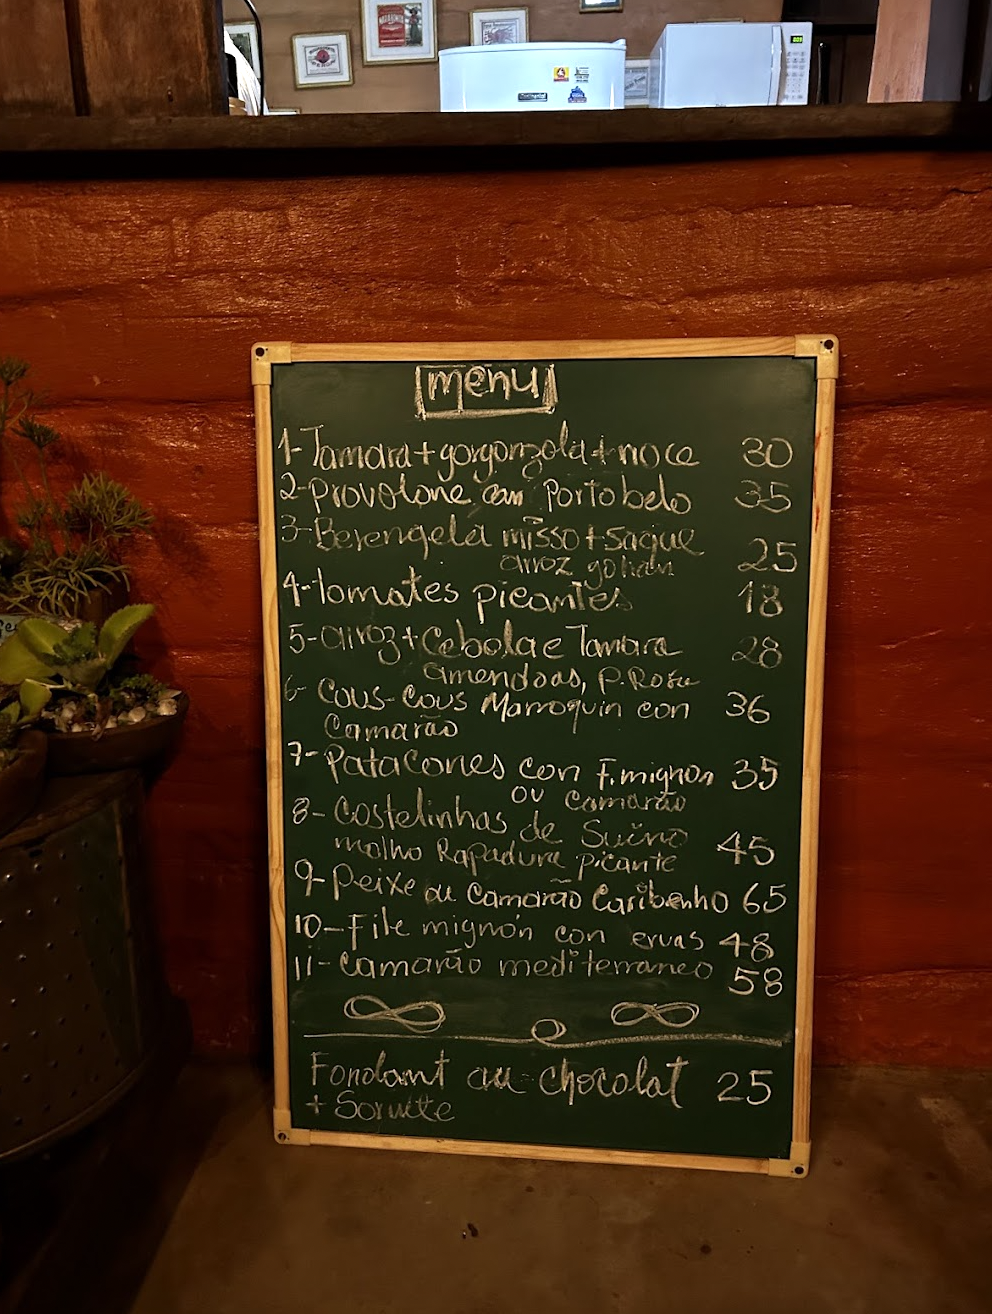 menu
1-Tamara+gorgonzola+noce 30
2-provolone con Portobelo 35
3-Berengela misso+saque
arroz gohan 25
4-tomates picantes 18
5-arroz+Cebola e Tamara 28
amendoas, P. Rosa
6- Cous-Cous Marroquin con 36
Camarão
7-Patacones con F.mignon 35
ou Camarão
8-Costelinhas de Suino
molho Rapadura picante 45
9-Peixe ou Camarão Caribenho 65
10-File mignón con ervas 48
11-Camarão mediterraneo 58
Fondant au chocolat 25
+ Sorvete